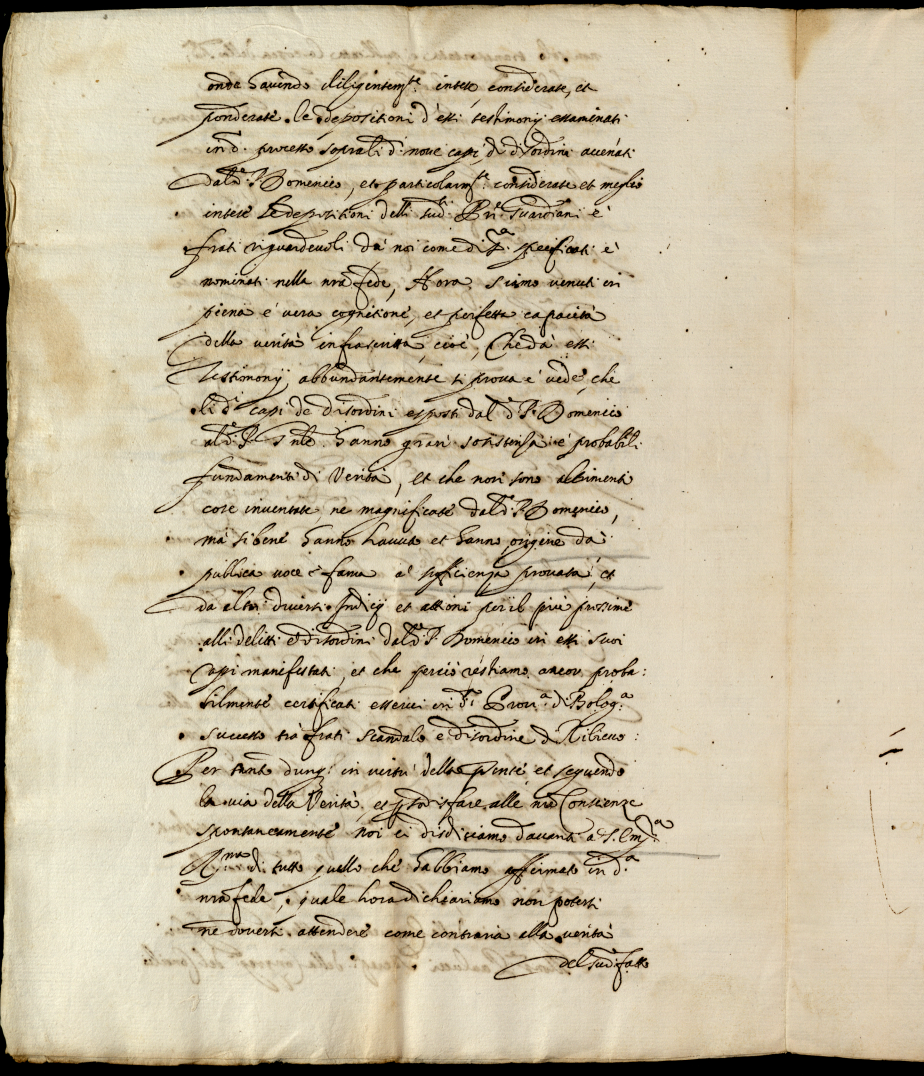 onde havendo diligentemte. intese, considerate, et
ponderate le depositioni d'essi testimonij essaminati
in d. processo sopra li d. nove capi di disordini accenati
dal d. P. Domenico, et particolarmte. considerate et meglio
intese le depositioni delli sud. Pri. Guardiani e
frati riguardevoli da noi come di sa. specificati e
nominati nella nra fede, Hora siamo venuti in
piena e vera cognitione, et perfetta capacità
della verità infrascritta, cioè, Che da essi
Testimonij abbundantemente si prova e vede, che
li di. capi de disordini esposti dal d. P. Domenico
al d. P. hanno gran sosistenza e probabili
fundamenti di Verità, et che non sono altrimenti
cose inventate, ne magnificate dal d. P. Domenico,
ma sibene hanno havuta et hanno origine da
publica voce e fama a sufficienza provata, et
da altri diversi Indicij et attioni per il più prossime
alli delitti e disordini dal d. P. Domenico in essi suoi
capi manifestati, et che perciò restiamo ancor proba:
bilmente certificati esservi in da. Prova. di Bologa.
successo tra frati scandalo e disordine di rilievo:
Per tanto dunq: in virtù della pnte, et seguendo
la via della Verità, et p sodisfare alle nre Conscienze
spontaneamente noi ci disdiciamo davanti a S. Emza.
Rma. di tutto quello che habbiamo affermato in da.
nra fede, quale hora dichiariamo non potersi
ne doversi attendere come contraria alla verità
del sud. fatto